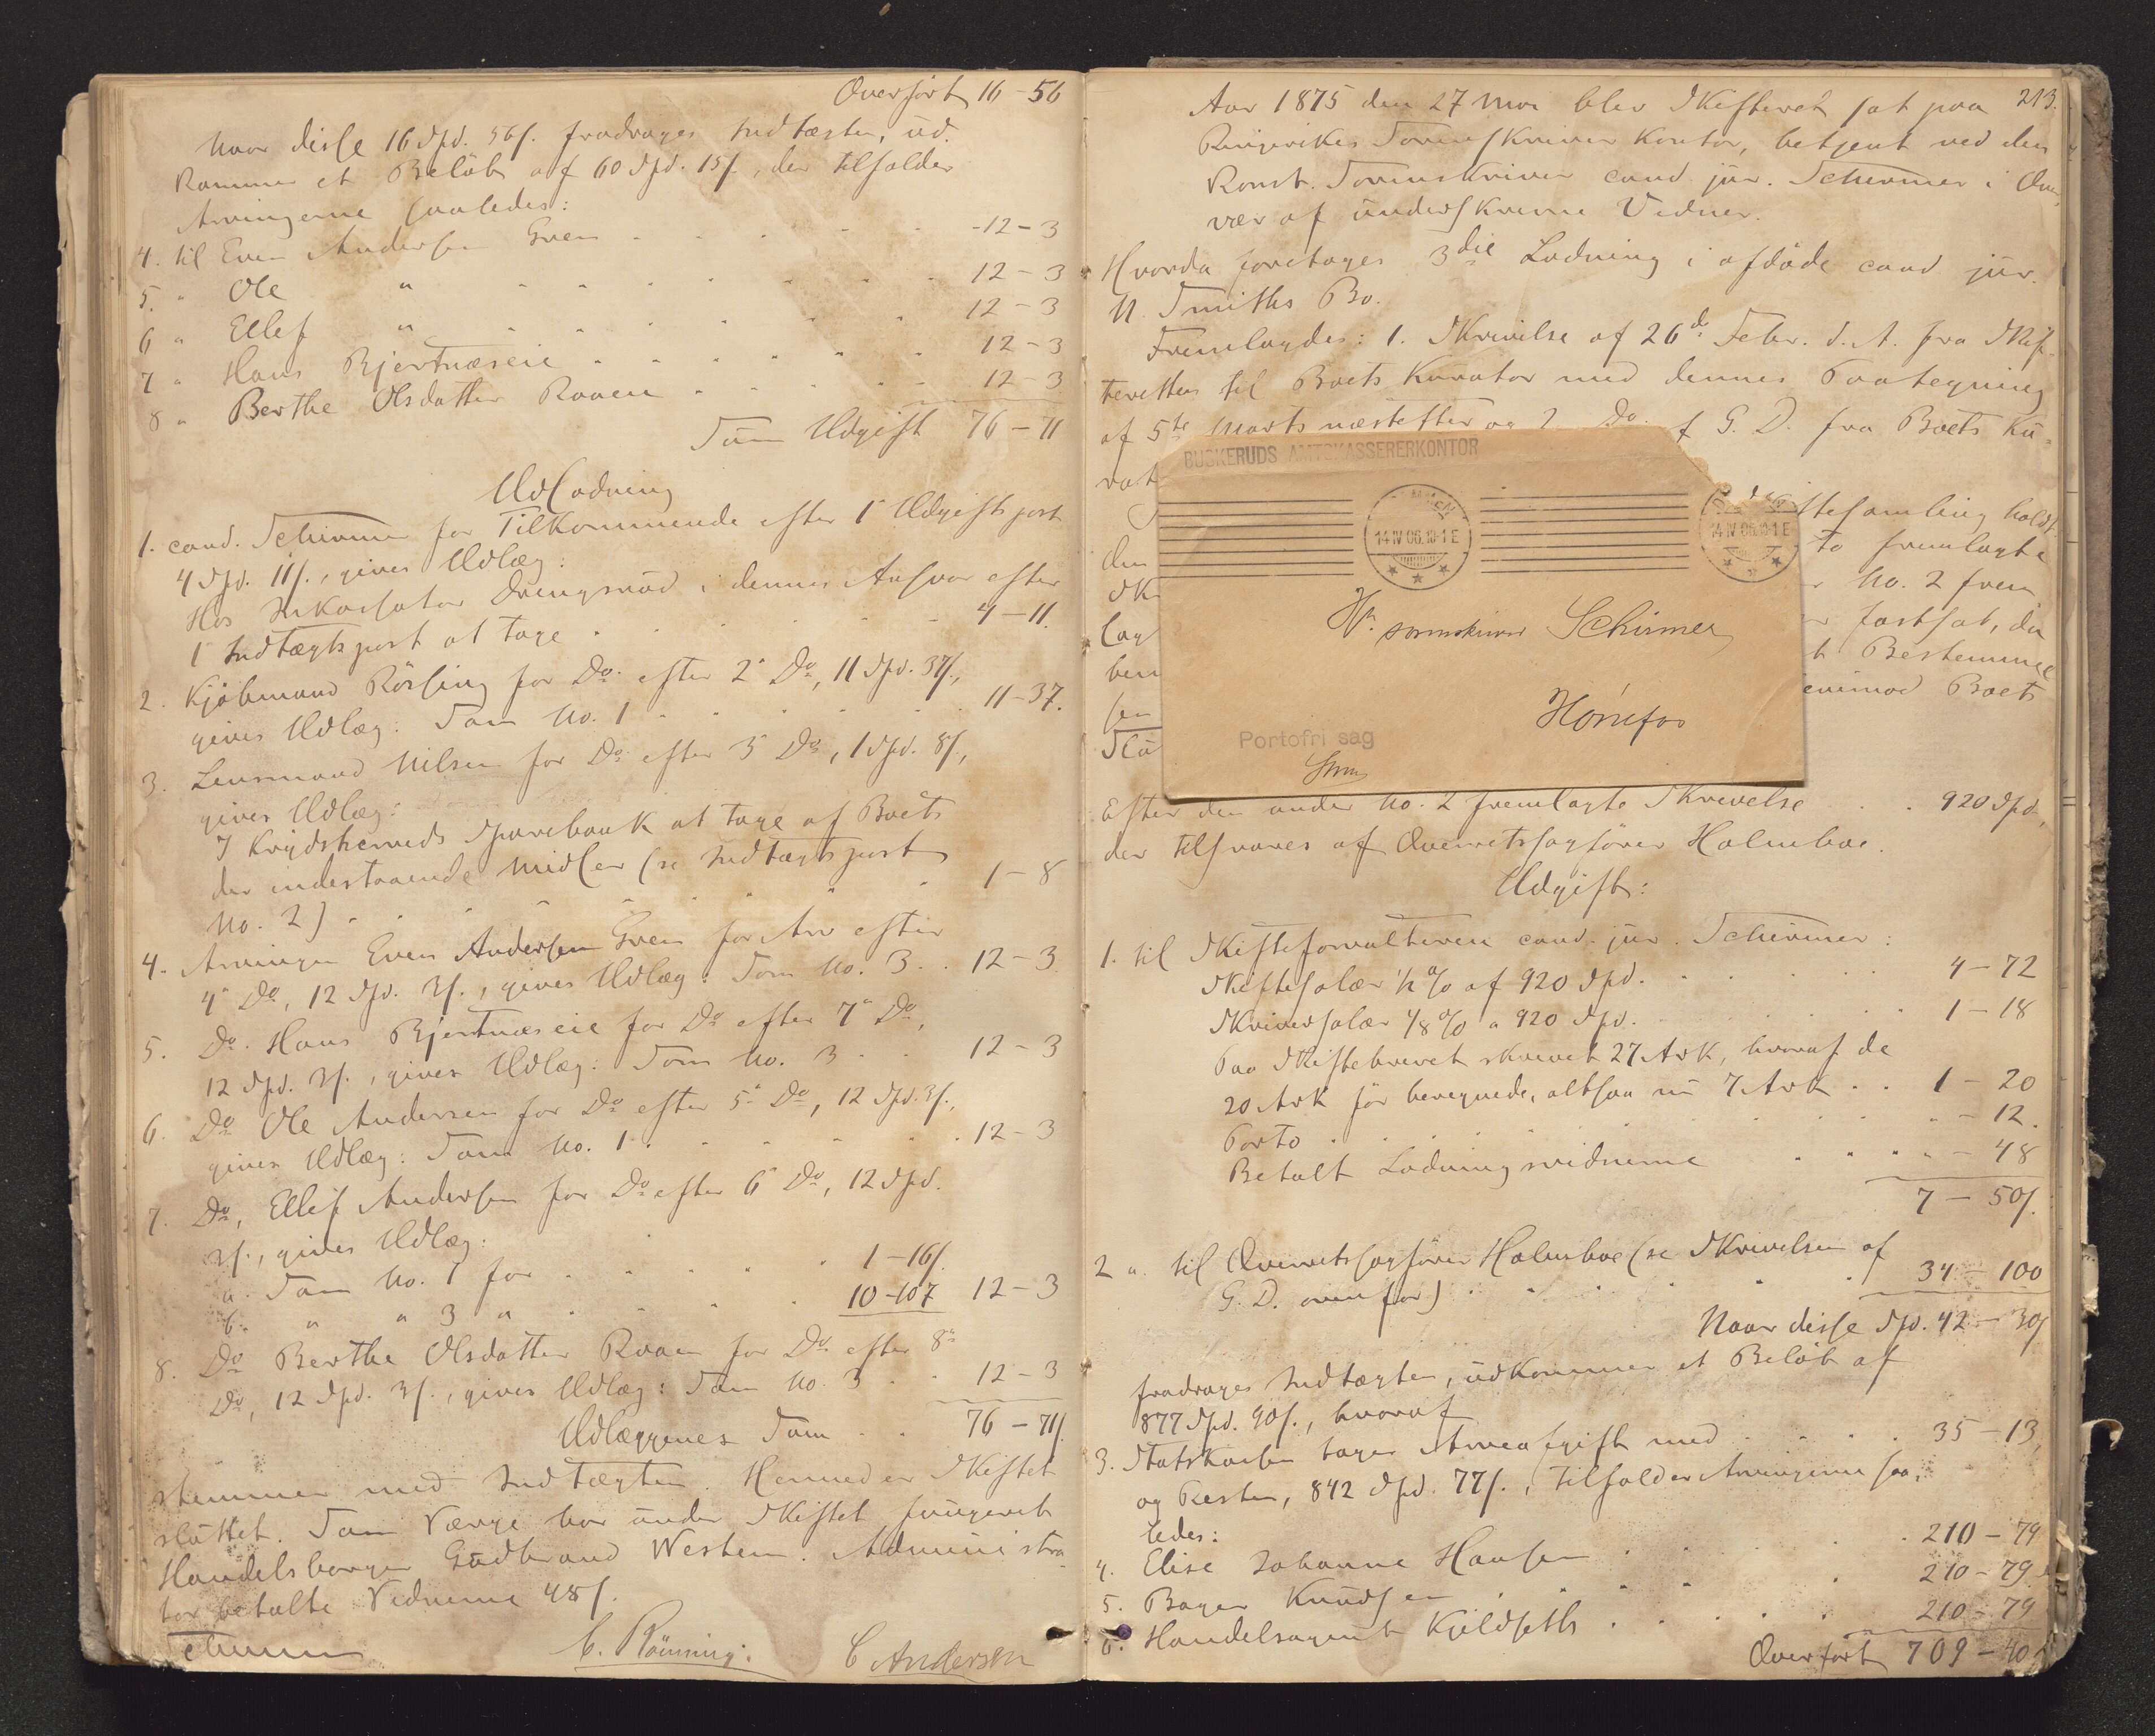 Overført 16 - 56
Naar disse 16 Spd. 56 s. fradrages Indtægten, ud-
kommer et Beløb af 60 Spd. 15 s., der tilfalder
Arvingerne saaledes:
4. til Even Andersen Green - 12 - 3
5. " Ole " 12 - 3
6 " Ellef " 12 - 3
7 " Hans Bjertnæseie 12 - 3
8 " Berthe Olsdatter Raaen 12 - 3
Sum Udgift 76 - 71
Udlodning
1. cand. Schirmer for Tilkommende efter 1ª Udgiftspost
4 Spd. 11 s., gives Udlæg:
Hos Inkassator Drengsrud i dennes Ansvar efter
1ª Indtægtspost at tage 4 - 11.
2. Kjøbmand Rørsing for Do. efter 2ª Do, 11 Spd. 37 s.,
gives Udlæg: Som No. 1 11 - 37.
3. Lensmand Nilsen for Do. efter 3ª Do, 1 Spd. 8 s.,
gives Udlæg:
I Krydsherreds Sparebank at tage af Boets
der indestaaende Midler (se Indtægtspost
No. 2) 1 - 8
4. Arvingen Even Andersen Green for Arv efter
4ª Do, 12 Spd. 3 s., gives Udlæg: Som No. 3 12 - 3
5. Do. Hans Bjertnæseie for Do efter 7ª Do,
12 Spd. 3 s., gives Udlæg: Som No. 3 12 - 3
6. Do Ole Andersen for Do efter 5ª Do, 12 Spd. 3 s.,
gives Udlæg: Som No. 1 12 - 3
7. Do, Ellef Andersen for Do efter 6ª Do, 12 Spd.
3 s., gives Udlæg:
a. Som No. 1 for 1 - 16 s.
b. " " 3 " 10 - 107 12 - 3
8. Do Berthe Olsdatter Raaen for Do efter 8ª
Do, 12 Spd. 3 s., gives Udlæg: Som No. 3 12 - 3
Udlæggenes Sum 76 - 71 s.
stemmer med Indtægten. Hermed er Skiftet
sluttet. Som Værge har under Skiftet fungeret
Handelsborger Gudbrand Western. Administra-
tor betalte Vidnerne 48 s.
Schirmer C. Rønning. C Andersen
213.
Aar 1875 den 27 Mai blev Skifteret sat paa
Ringerikes Sorenskriver Kontor, betjent ved den
Konst. Sorenskriver cand. jur. Schirmer i Over-
vær af underskrevne Vidner.
Hvorda foretages 3die Lodning i afdøde cand jur.
N. Smiths Bo.
Fremlagdes: 1. Skrivelse af 26de Febr. d. A. fra Skif-
teretten til Boets Kurator med dennes Paategning
af 5te Marts næstefter og 2. Do. f G. D. fra Boets Ku-
rat
BUSKERUDS AMTSKASSERERKONTOR
14 IV 06. 10-1 E
14 IV 06. 10-1 E
Hr. sorenskriver Schirmer
Hønefos
Portofri sag
den
Sk
lag
ben
sen
Slu
ftesamling holdt
to fremlagte
No. 2 frem
fastsat, da
t Bestemmel
enimod Boets
Efter den under No. 2 fremlagte Skrivelse 920 Spd.,
der tilsvares af Overretssagfører Holmboe.
Udgift:
1. til Skifteforvalteren cand. jur. Schirmer:
Skiftesalær 1/2 % af 920 Spd. 4 - 72
Skriversalær 1/8 % a 920 Spd. 1 - 18
Paa Skiftebrevet skrevet 27 Ark, hvoraf de
20 Ark før beregnede, altsaa nu 7 Ark 1 - 20
Porto - 12.
Betalt Lodningsvidnerne - 48
7 - 50 s.
2 a. til Overretssagfører Holmboe (se Skrivelsen af
G. D. ovenfor) 34 - 100
Naar disse Spd. 42 - 30 s
fradrages Indtægten, udkommer et Beløb af
877 Spd. 90 s., hvoraf
3. Statskassen tager Arveafgift med 35 - 13,
og Resten, 842 Spd. 77 s., tilfalder Arvingerne saa-
ledes:
4. Elise Johanne Hansen 210 - 79
5. Bager Knudsen 210 - 79
6. Handelsagent Kjeldseth 210 - 79
Overført 709 - 40